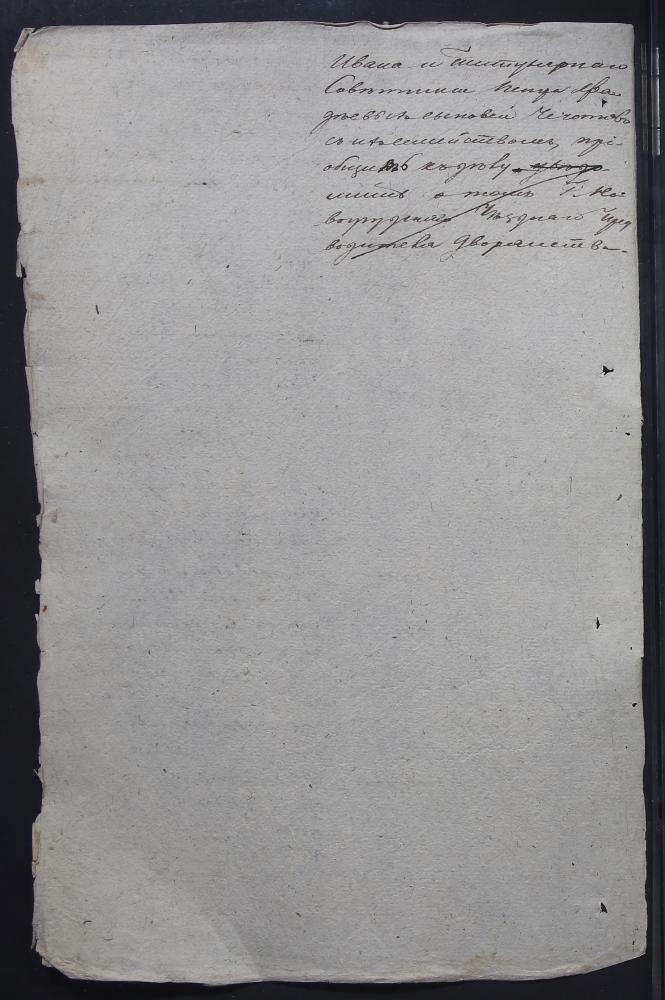 Ивана и Титулярнаго
Советника Петра Фра-
цовыхъ сыновей Чечотовъ
съ ихъ семействомъ, прі-
общить къ делу, уведо
мить о томъ Г. Но
вогрудскаго Уезднаго Пред
водителя Дворянства